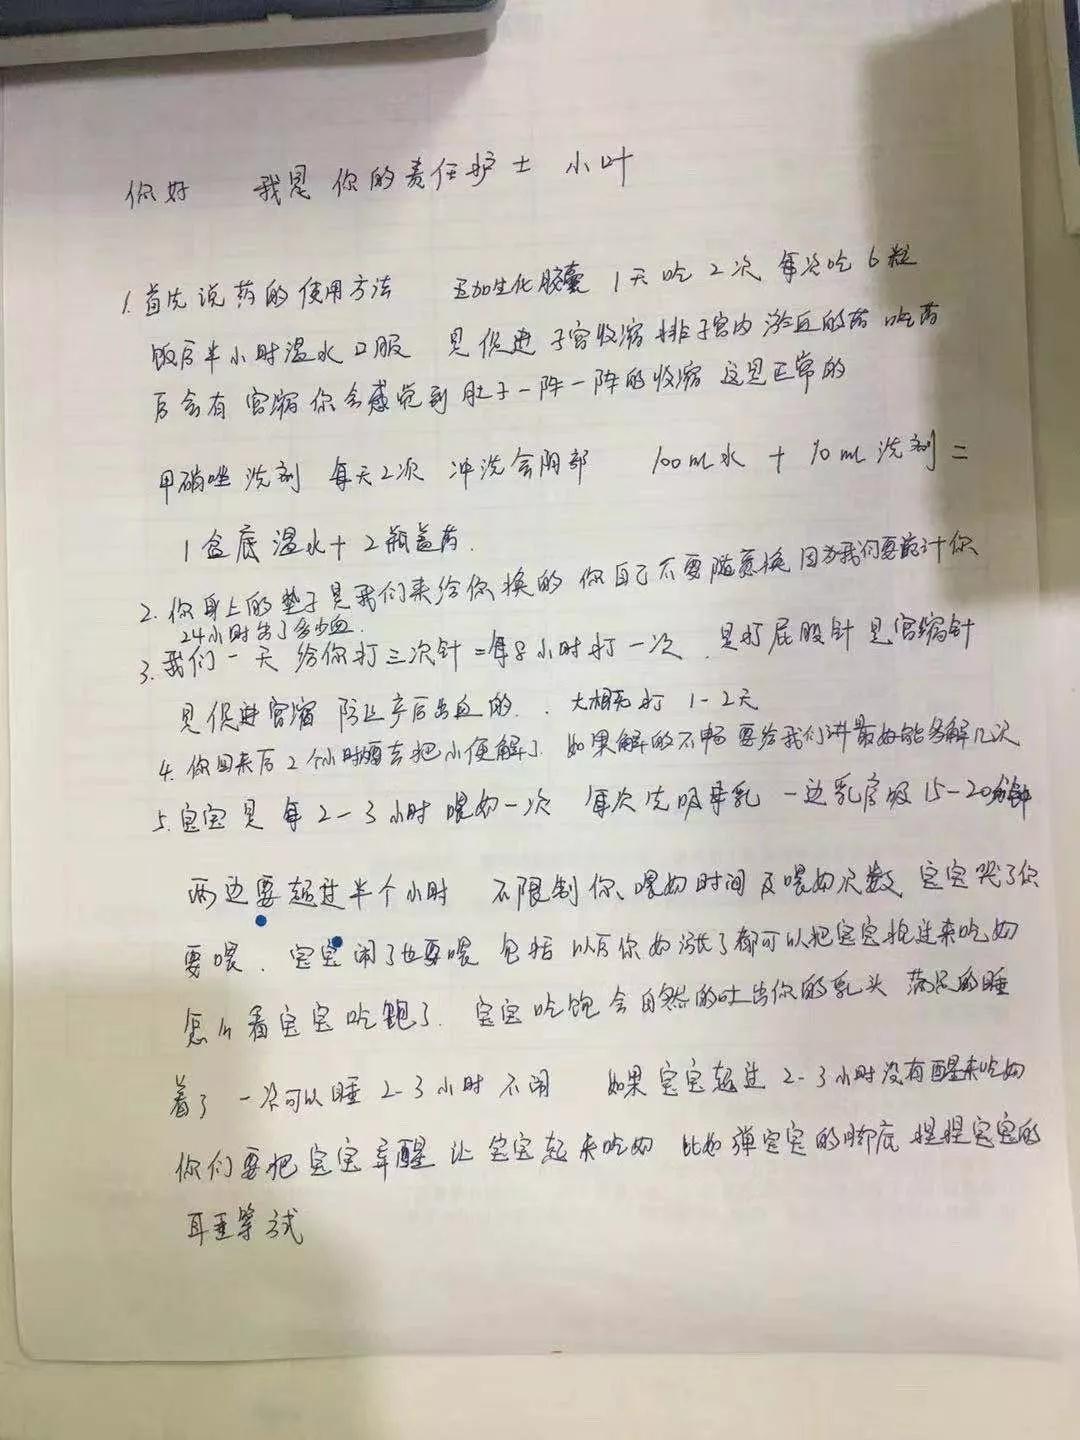 你好 我是你的责任护士 小叶
1. 首先说药的使用方法 五加生化胶囊 1天吃2次 每次吃6粒
饭后半小时温水口服 是促进子宫收缩排子宫内淤血的药 吃药
后会有宫缩你会感觉到肚子一阵一阵的收缩 这是正常的
甲硝唑洗剂 每天2次 冲洗会阴部 100ml水 + 10ml洗剂 =
1盒底温水 + 2瓶盖药.
2. 你身上的垫子是我们来给你换的 你自己不要随意换 因为我们要统计你
24小时出了多少血
3. 我们一天给你打三次针 = 每8小时打一次. 是打屁股针 是宫缩针
是促进宫缩 防止产后出血的. 大概打1-2天
4. 你回来后2个小时要去把小便解了 如果解的不畅要给我们讲最好能多解几次
5. 宝宝是每2-3小时喂奶一次 每次先吸母乳 一边乳房吸15-20分钟
两边要超过半个小时 不限制你喂奶时间及喂奶次数 宝宝哭了你
要喂. 宝宝闹了也要喂 包括以后你奶涨了都可以把宝宝抱过来吃奶
怎么看宝宝吃饱了. 宝宝吃饱会自然的吐出你的乳头 满足的睡
着了 一次可以睡2-3小时不闹 如果宝宝超过2-3小时没有醒来吃奶
你们要把宝宝弄醒 让宝宝起来吃奶 比如弹宝宝的脚底 捏捏宝宝的
耳垂等方式